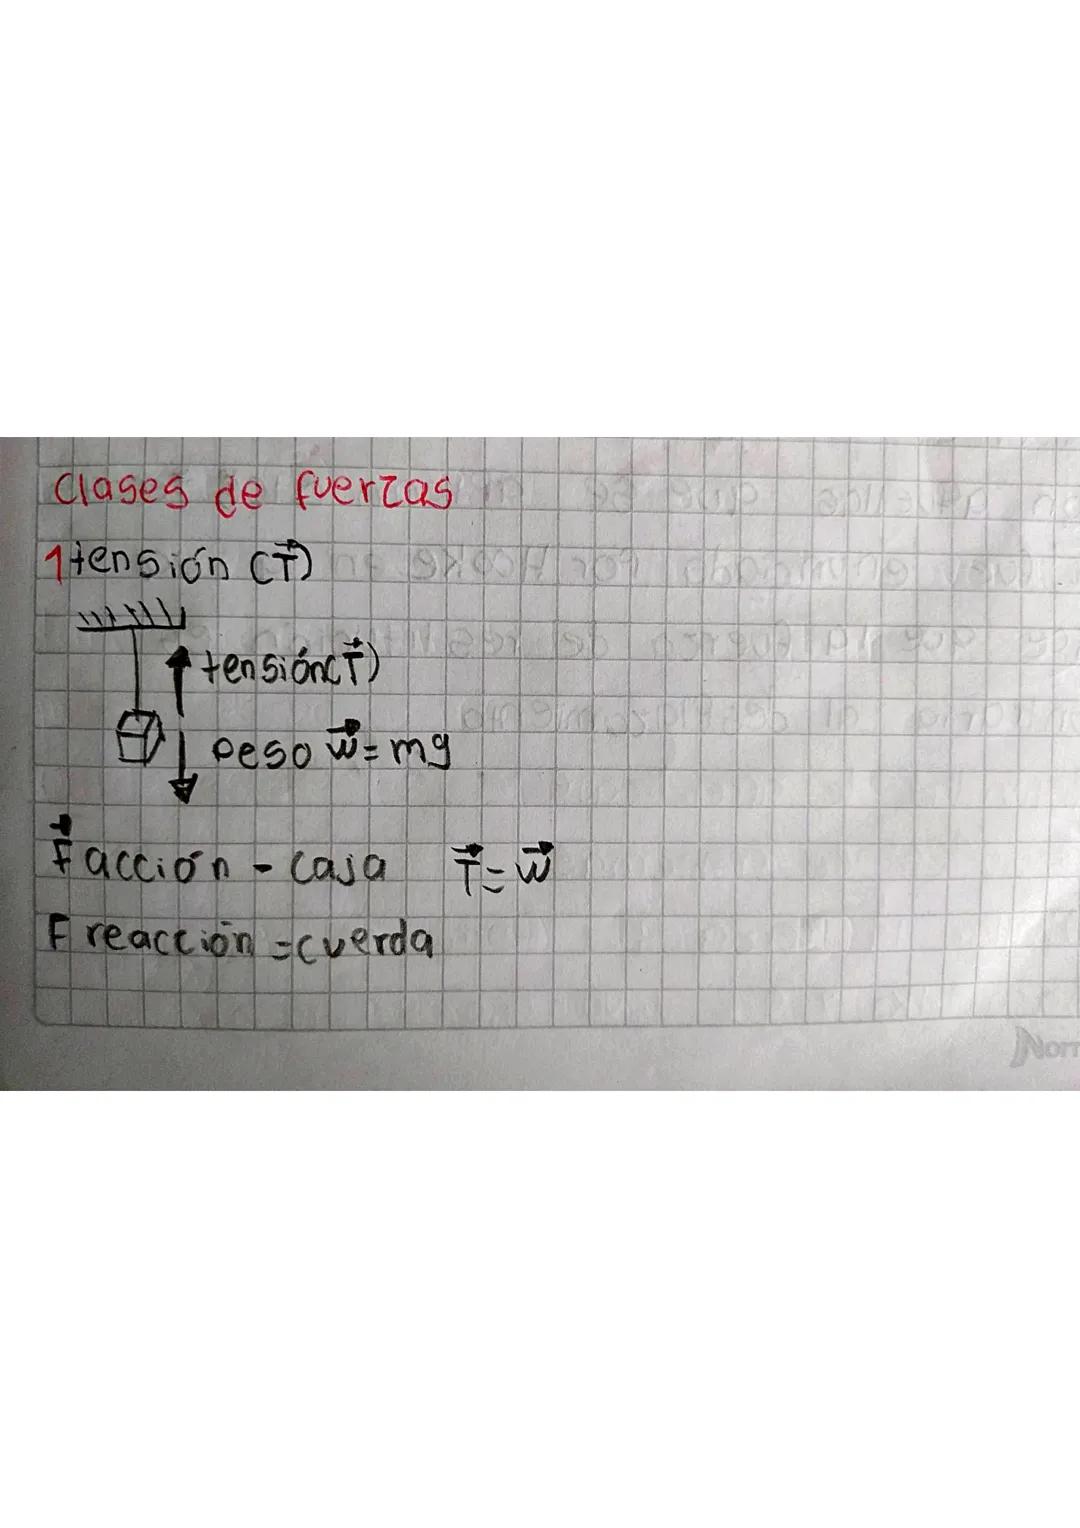 Clases de fuerzas
1 tensión (T⃗)
tensión(T⃗)
peso w⃗ = mg
F⃗ acción - caja T⃗ = w⃗
F reacción = cuerda
Norm